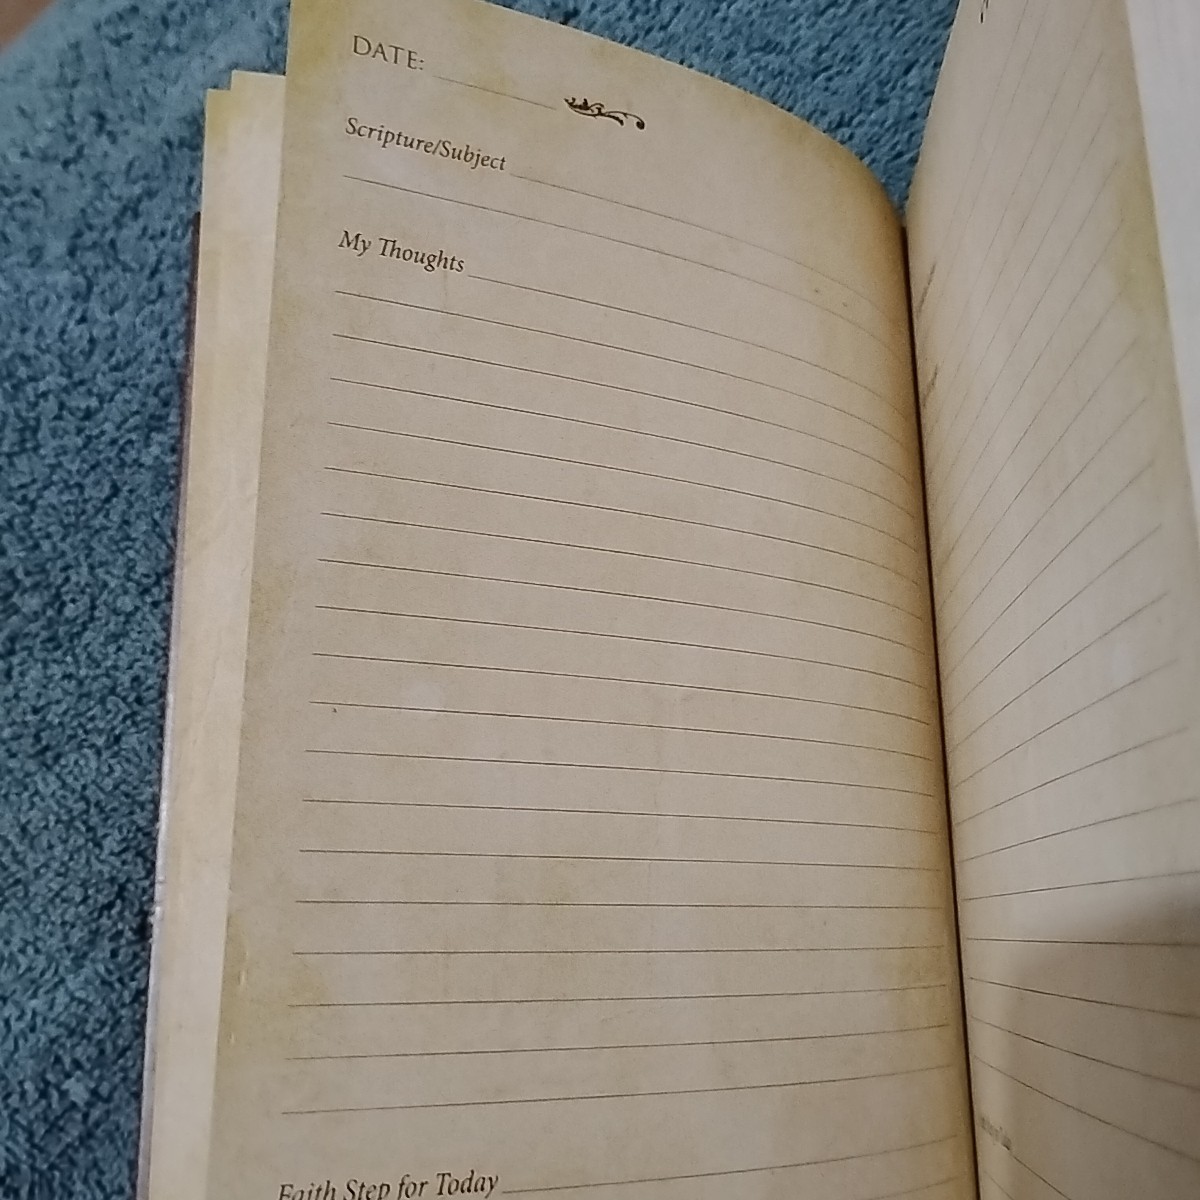 DATE:
Scripture/Subject
My Thoughts
Faith Step for Today